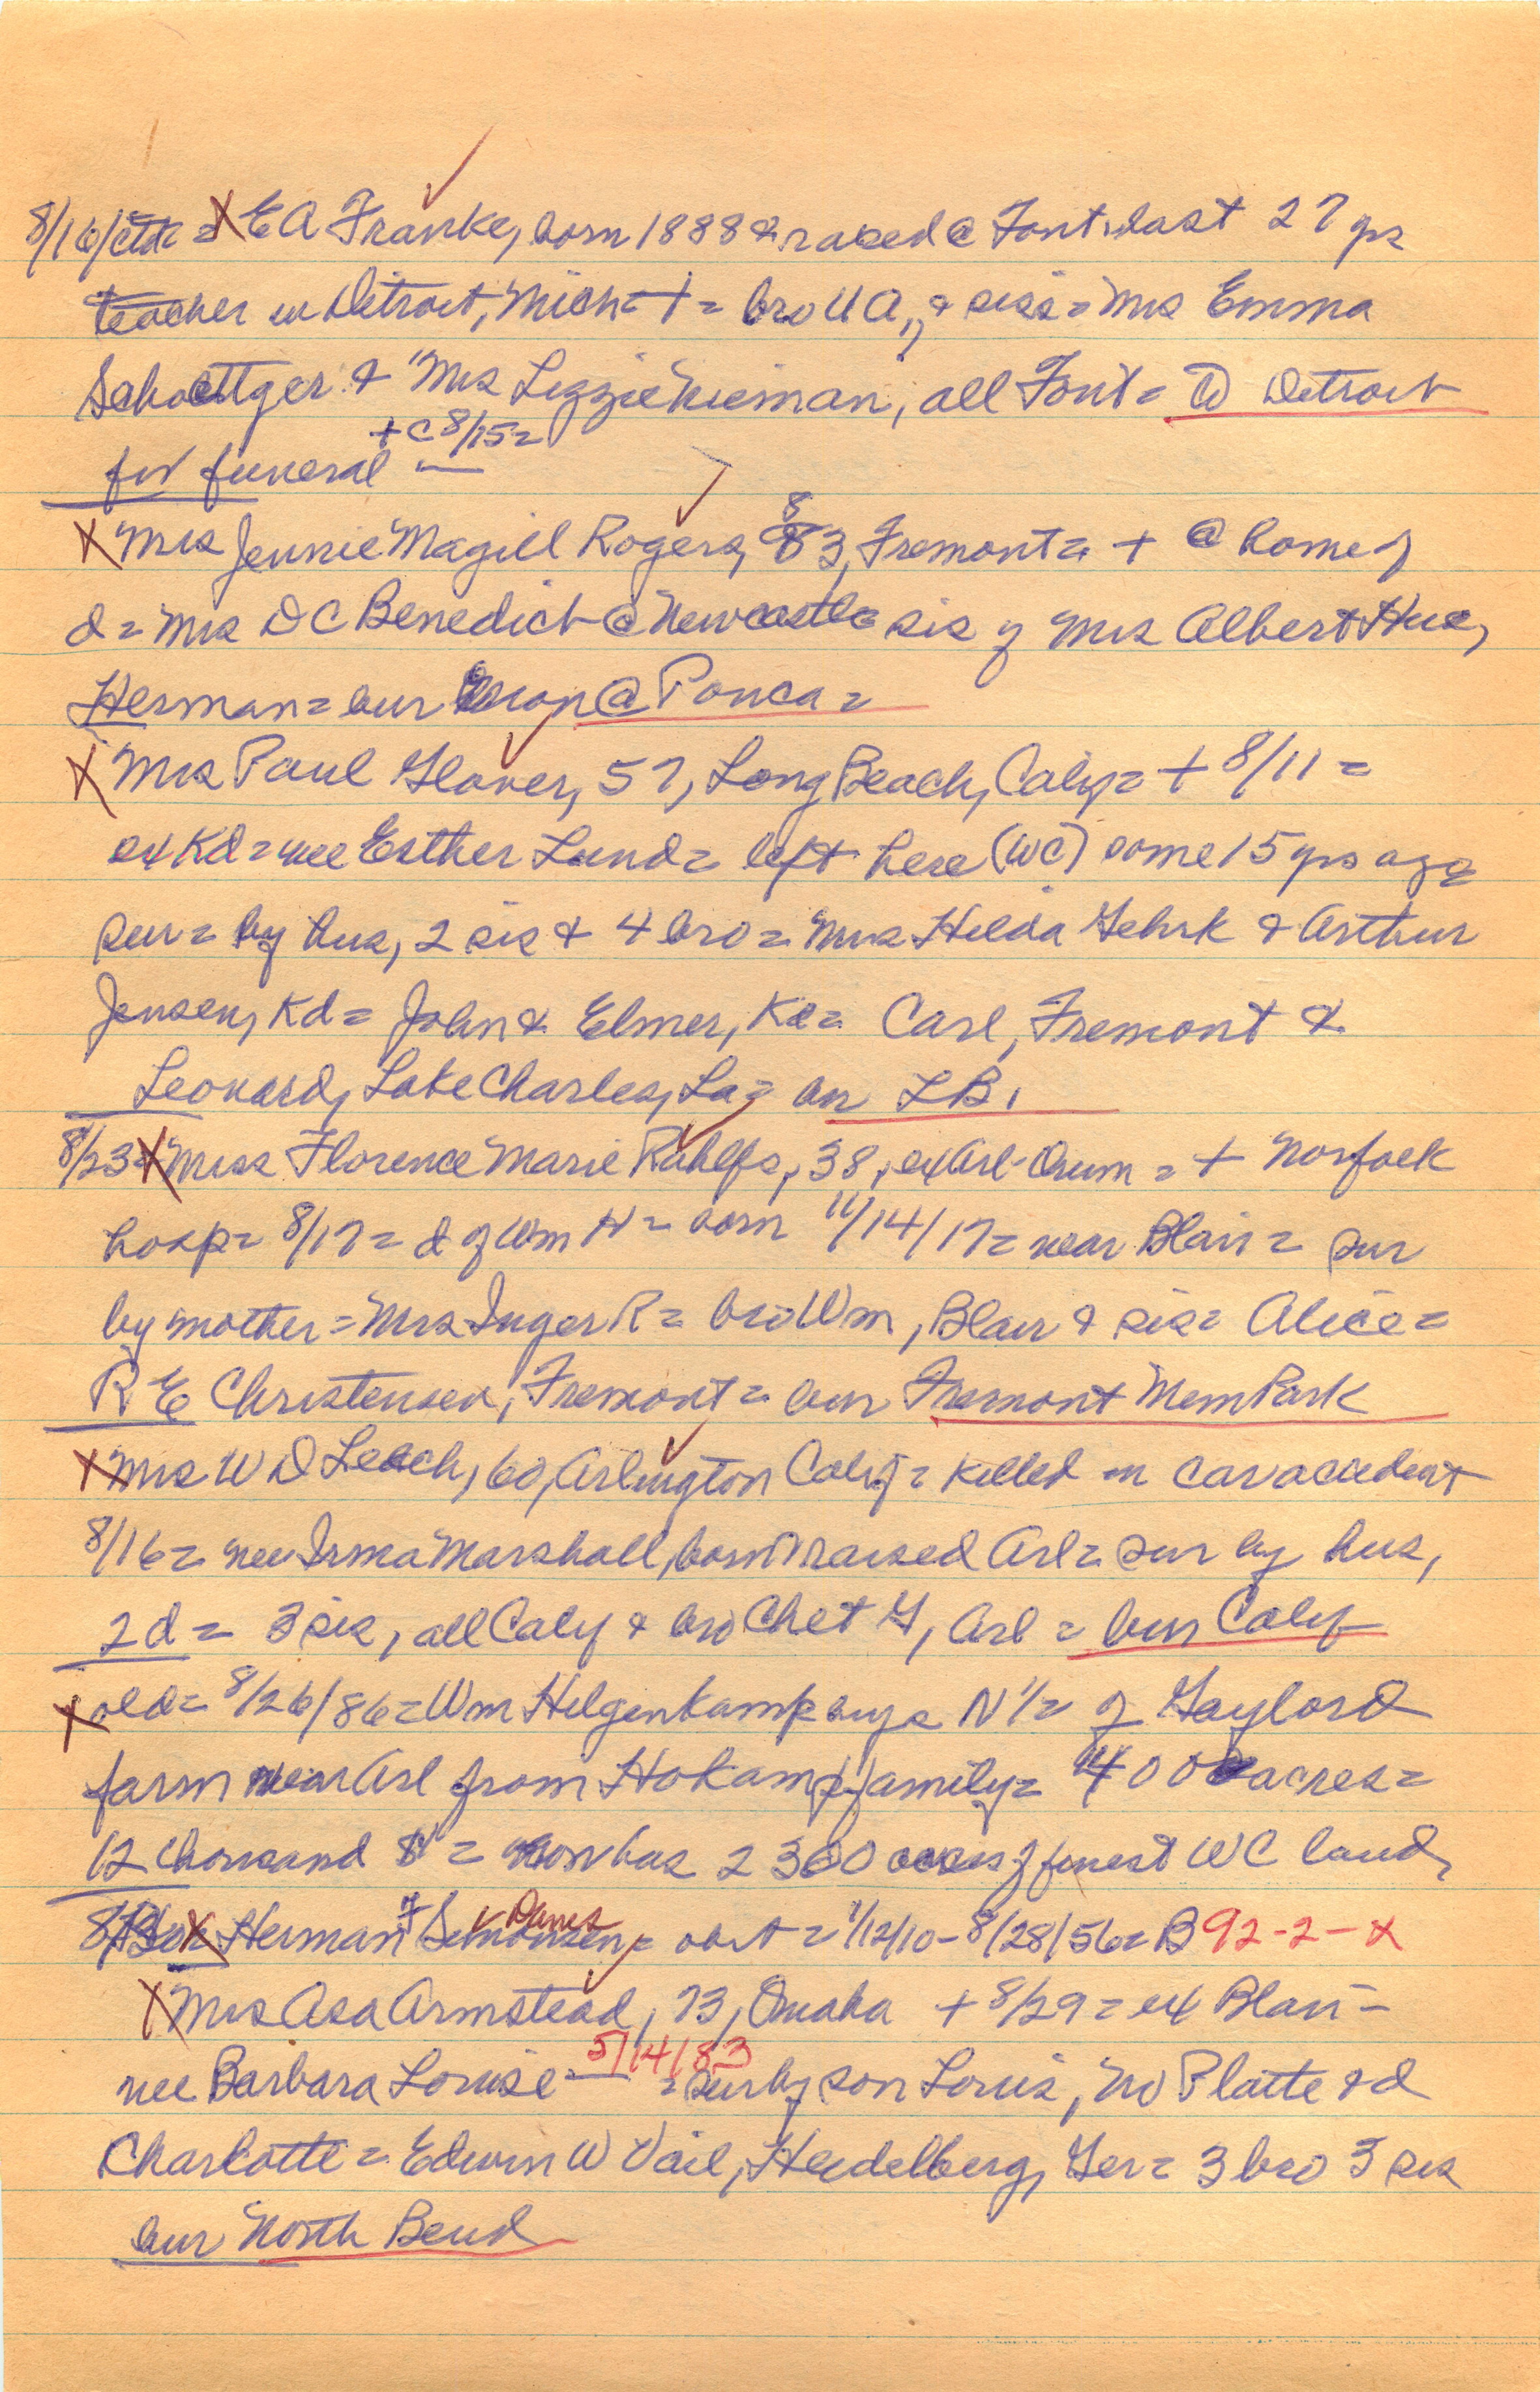 8/16/ctd = X E A Franke, born 1888 & raised @ Font. last 27 yrs
teacher in Detroit, Mich = + = bro U A, & siss = Mrs Emma
Schoettger & Mrs Lizzie Nieman, all Font = Detroit
+ C 8/15 =
for funeral —
X Mrs Jennie Magill Rogers, 83, Fremont = + @ home of
d = Mrs D C Benedict @ Newcastle = sis of Mrs Albert
Herman = bur @ Ponca =
X Mrs Paul Glover, 57, Long Beach, Calif = + 8/11 =
ex Kd = nee Esther Lund = left here (WC) some 15 yrs ago
sur = by hus, 2 sis & 4 bro = Mrs Hilda Gehrk & Arthur
Jensen, Kd = John & Elmer, Kd = Carl, Fremont &
Leonard, Lake Charles, La = bur LB.
8/23 = X Miss Florence Marie Rahlfs, 38, ex Arl-Orum = + Norfolk
hosp = 8/17 = d of Wm H = born 11/14/17 = near Blair = sur
by mother = Mrs Inger R = bro Wm, Blair & sis = Alice =
R E Christensen, Fremont = bur Fremont Mem Park
X Mrs W D Leach, 60, Arlington Calif = killed in car accident
8/16 = nee Irma Marshall, born & raised Arl = sur by hus,
2 d = 3 sis, all Calif & bro Chet G, Arl = bur Calif
X old = 8/26/86 = Wm Hilgenkamp buys N 1/2 of Gaylord
farm near Arl from HoKamp family = 400 acres =
12 thousand $ = now has 2360 acres of finest WC land,
8/30 = X Herman F = obit = 1/12/10 - 8/28/56 = B 92-2-X
X Mrs Asa Armstead, 73, Omaha + 8/29 = ex Blair =
5/14/83
nee Barbara Louise — = sur by son Louis, No Platte & d
Charlotte = Edwin W Vail, Heidelberg, Ger = 3 bro 3 sis
bur North Bend